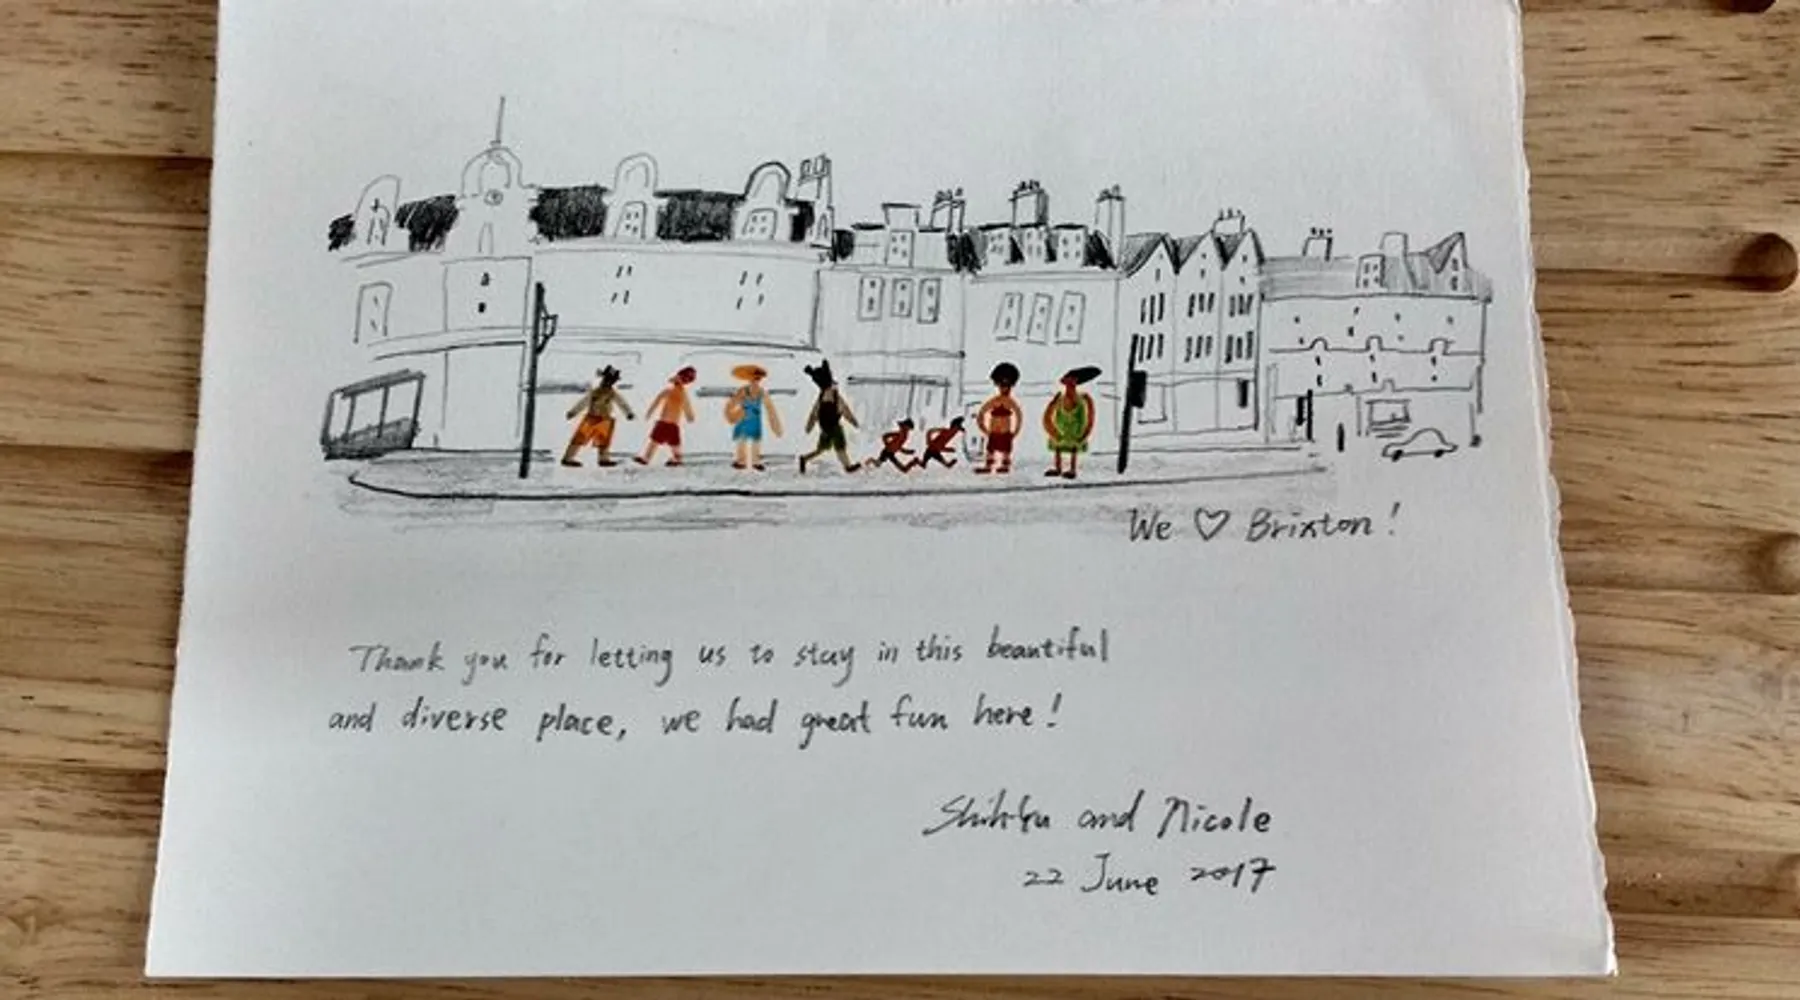 We ♡ Brixton!
Thank you for letting us to stay in this beautiful
and diverse place, we had great fun here!
and Nicole
22 June 2017